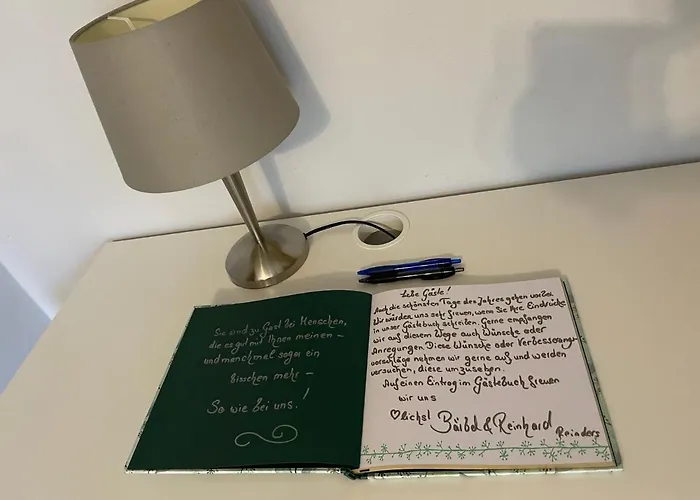 Sie sind zu Gast bei Menschen,
die es gut mit Ihnen meinen –
und manchmal sogar ein
bisschen mehr –
So wie bei uns!
Liebe Gäste!
Auch die schönsten Tage des Jahres gehen vorbei.
Wir würden uns sehr freuen, wenn Sie Ihre Eindrücke
in unser Gästebuch schreiben. Gerne empfangen
wir auf diesem Wege auch Wünsche oder
Anregungen. Diese Wünsche oder Verbesserungs-
vorschläge nehmen wir gerne auf und werden
versuchen, diese umzusetzen.
Auf einen Eintrag im Gästebuch freuen
wir uns
♡lichst Bärbel & Reinhard
Reinders